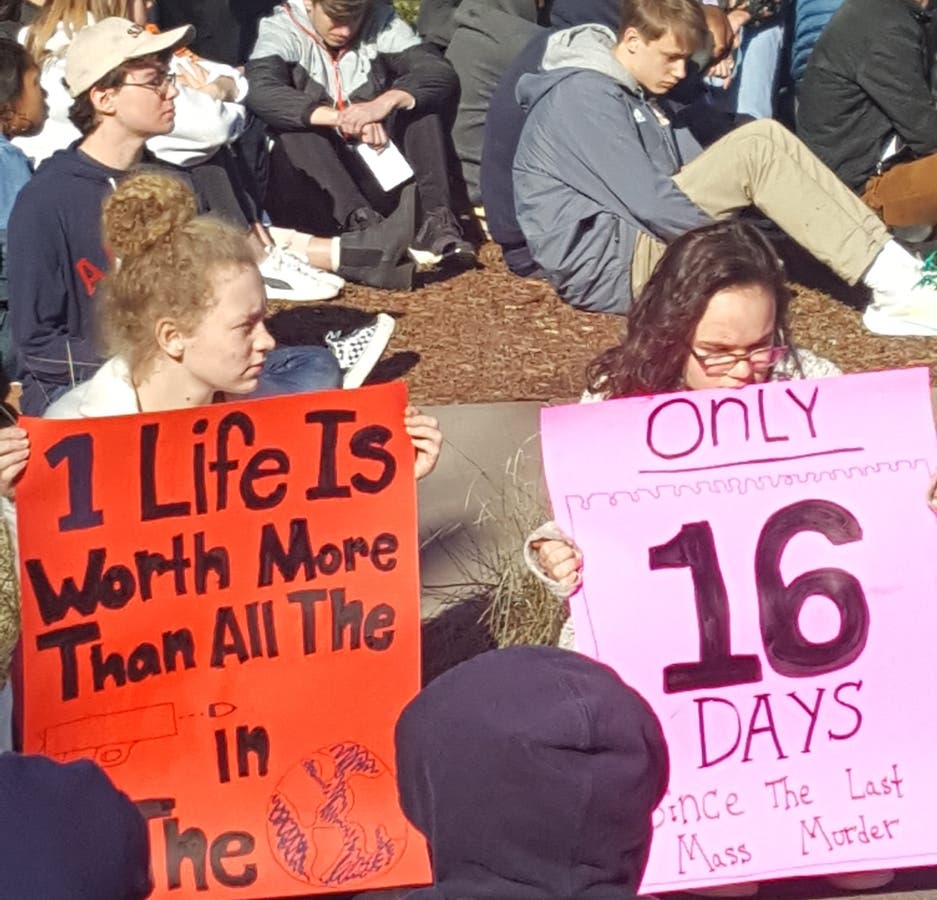 1 Life Is
Worth More
Than All The
in
The
ONLY
16
DAYS
Since The Last
Mass Murder
A